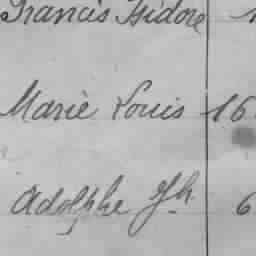 Francis Isidore
Marie Louis 16
Adolphe Jh 6